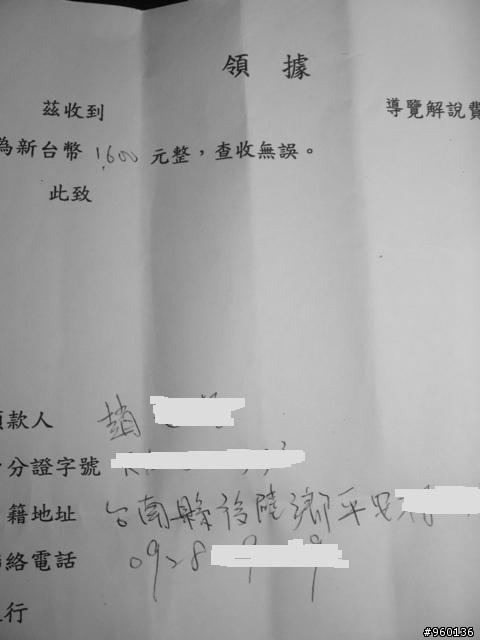 領 據
茲收到 導覽解說費
為新台幣 1,600 元整，查收無誤。
此致
款人 趙
分證字號
籍地址 台南縣後 鄉平
絡電話 0928 9 9
行
#960136